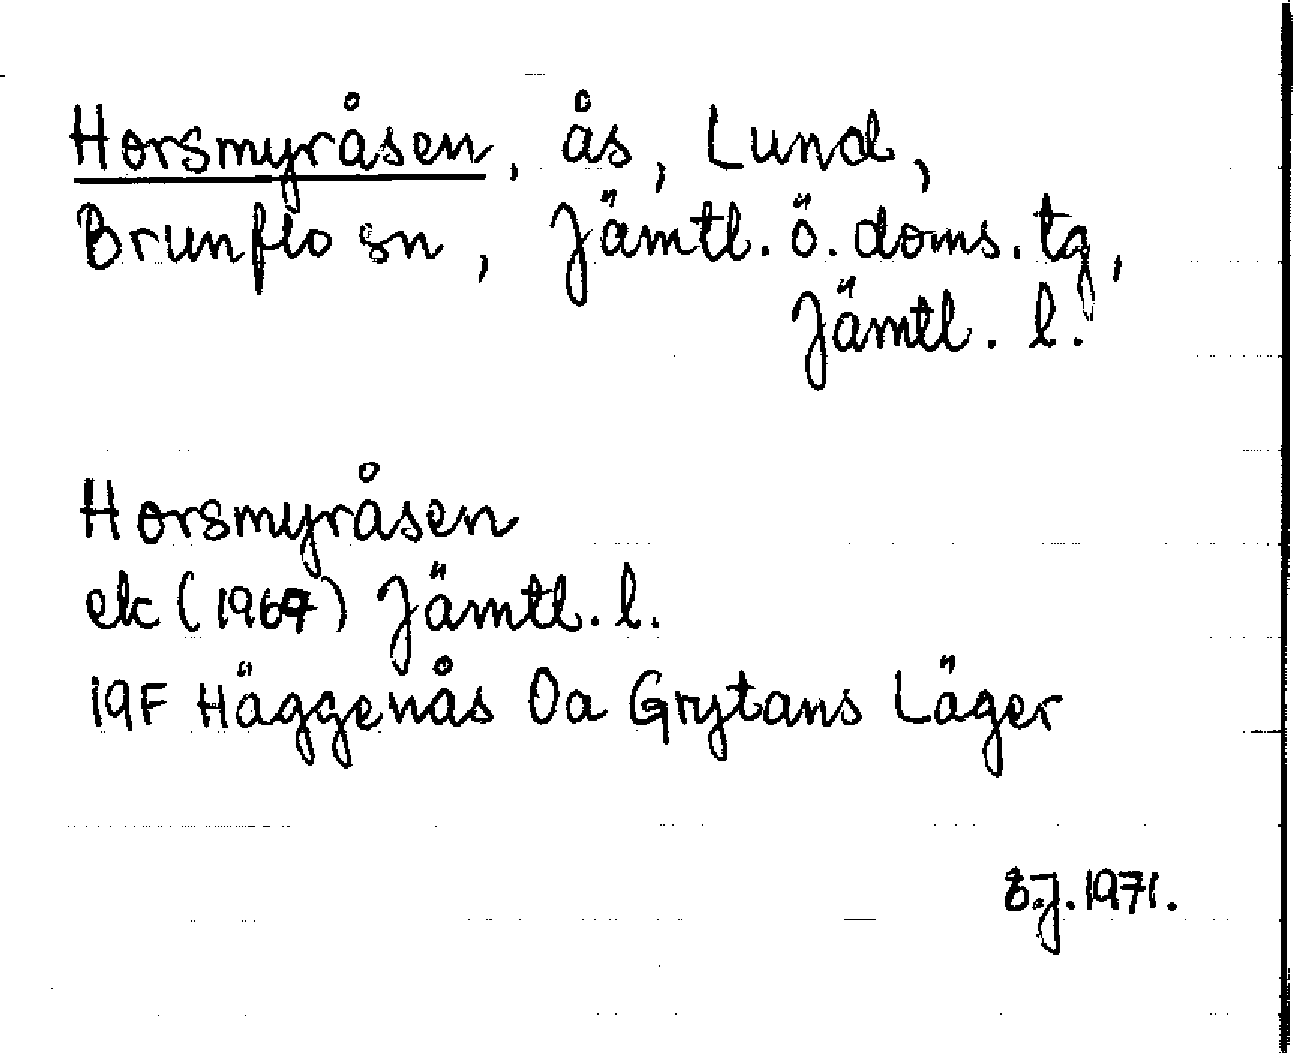 Horsmyråsen, ås, Lund,
Brunflo sn, Jämtl. ö. doms. tg,
Jämtl. l.
Horsmyråsen
ek (1967) Jämtl. l.
19F Häggenås 0a Grytans Läger
B.J. 1971.